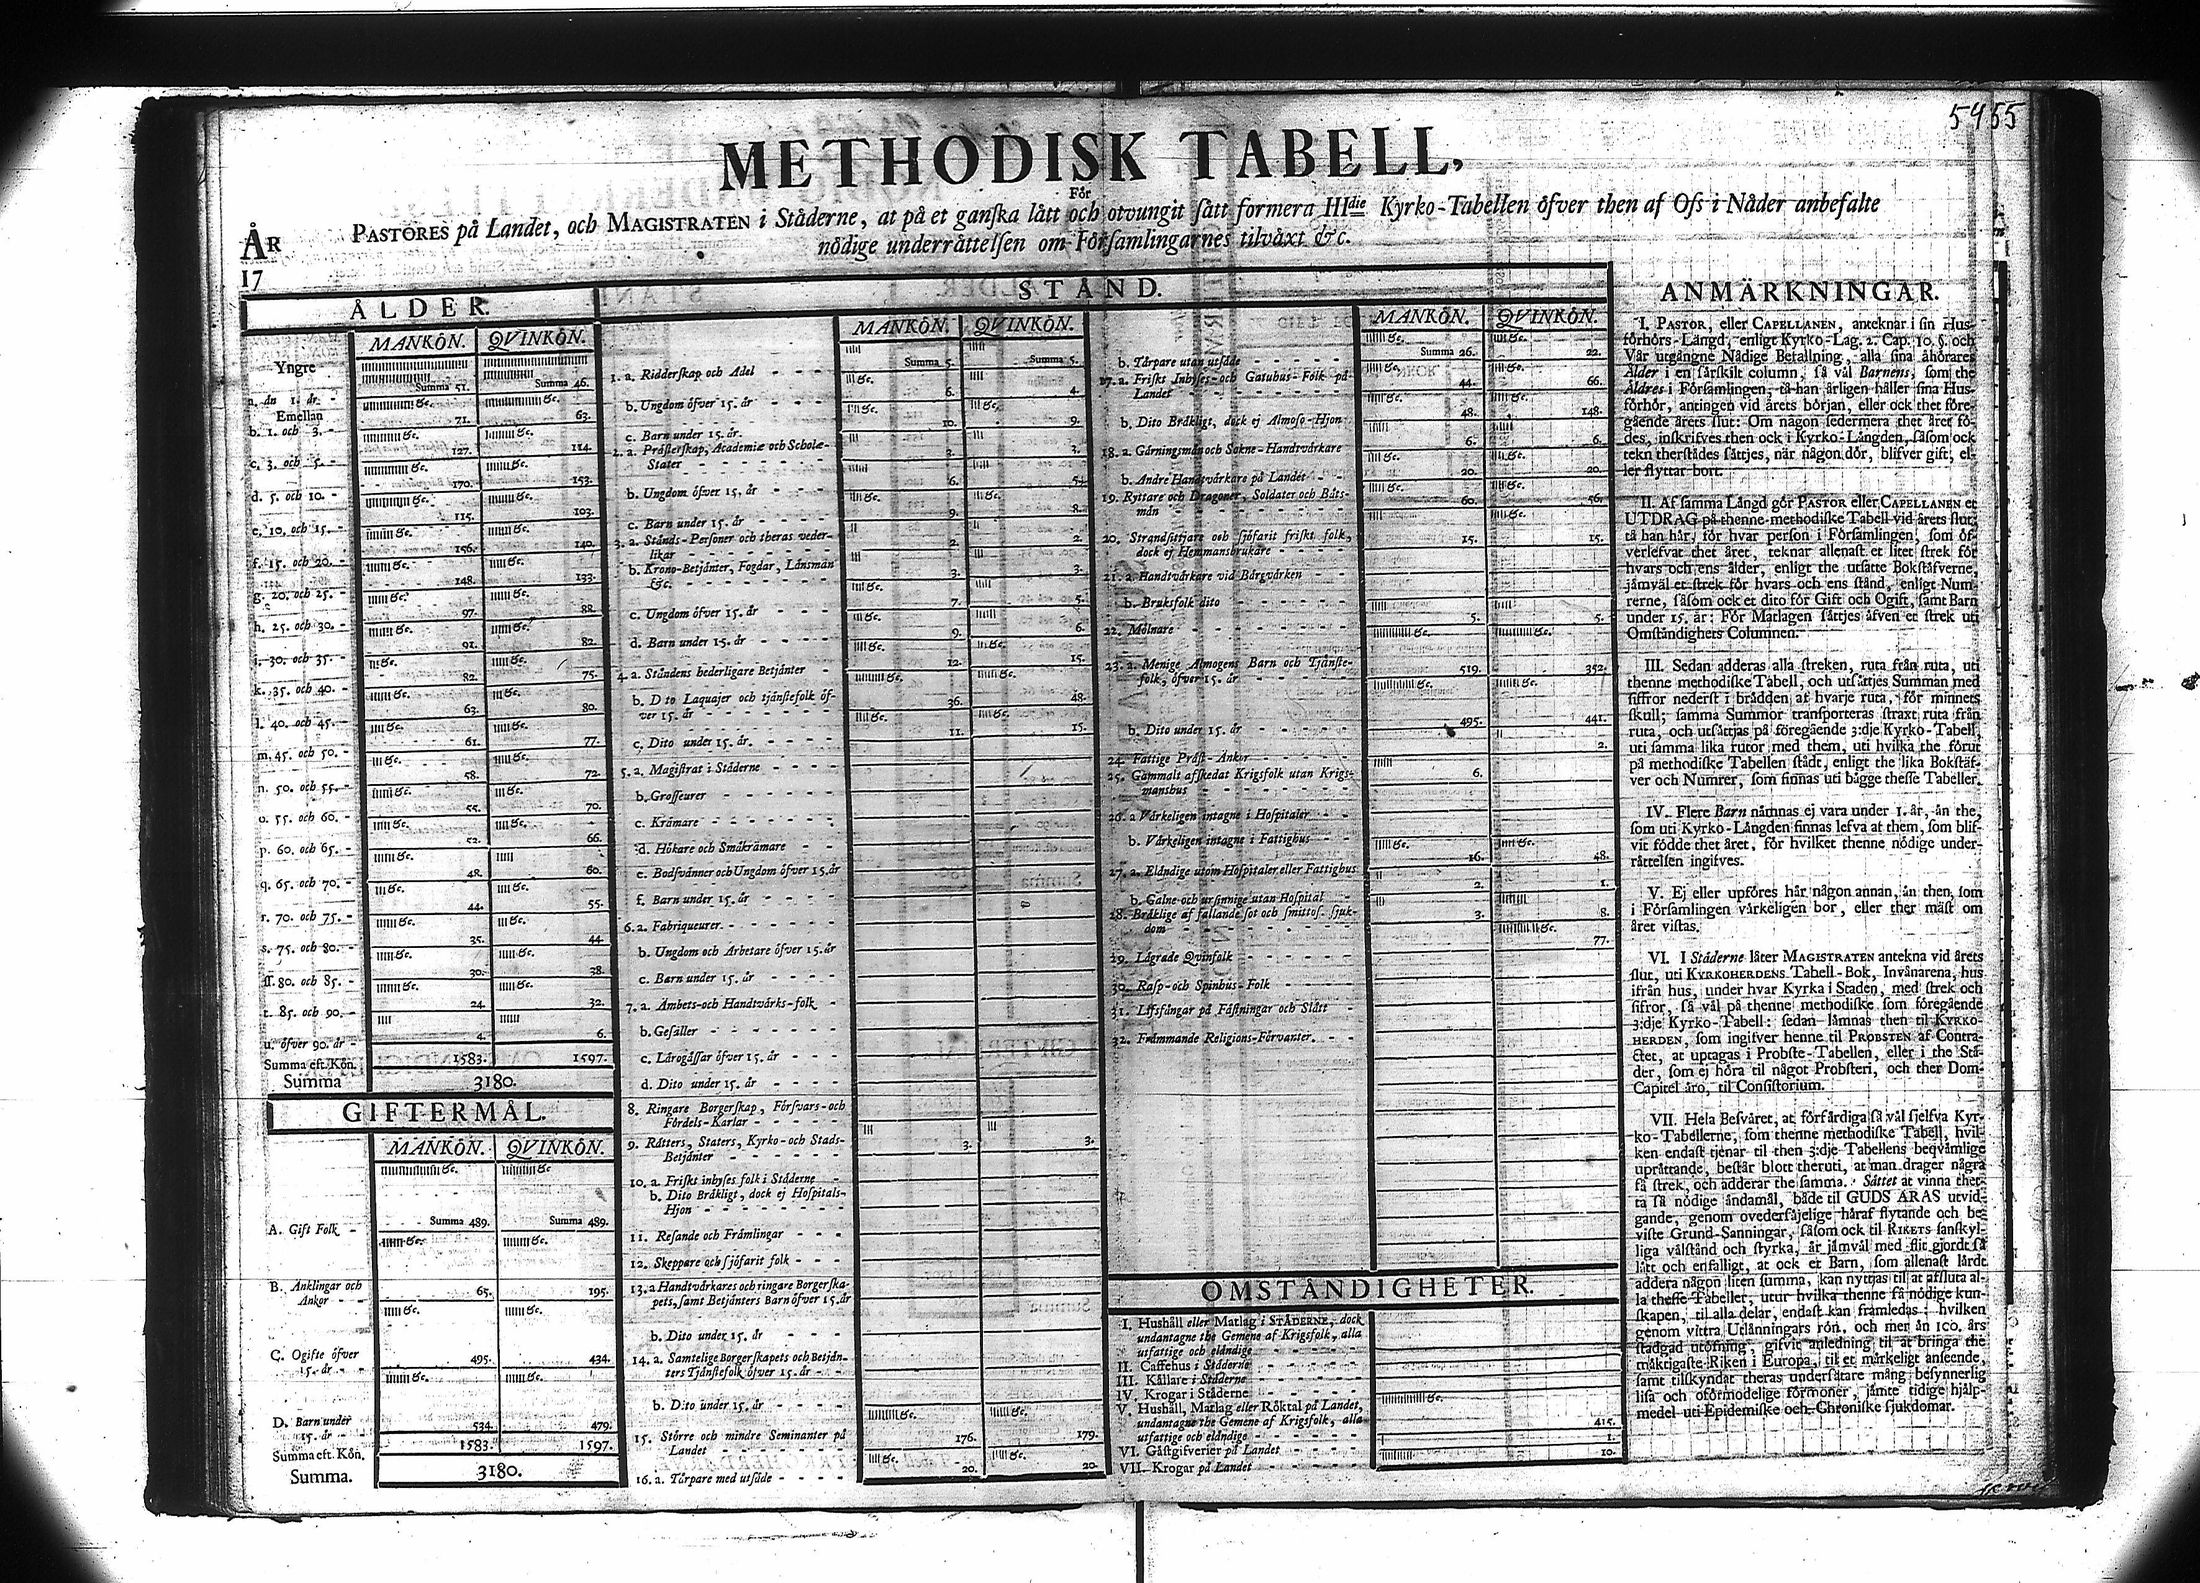 5455
METHODISK TABELL,
För
PASTORES på Landet, och MAGISTRATEN i Städerne, at på et ganska lätt och otvungit sätt formera IIIdie Kyrko-Tabellen öfver then af Oss i Nåder anbefalte
nödige underrättelsen om Församlingarnes tilväxt &c.
ÅR
17
ÅLDER.
MANKÖN. QVINKÖN.
Yngre
Summa 51. Summa 46.
a. än 1. år - 
Emellan 71. 63.
b. 1. och 3. - 127. 114.
c. 3. och 5. - 170. 153.
d. 5. och 10. - 115. 103.
e. 10. och 15. - 156. 140.
f. 15. och 20. - 148. 133.
g. 20. och 25. - 97. 88.
h. 25. och 30. - 91. 82.
i. 30. och 35. - 82. 75.
k. 35. och 40. - 63. 80.
l. 40. och 45. - 61. 77.
m. 45. och 50. - 58. 72.
n. 50. och 55. - 55. 70.
o. 55. och 60. - 52. 66.
p. 60. och 65. - 48. 60.
q. 65. och 70. - 44. 55.
r. 70. och 75. - 35. 44.
s. 75. och 80. - 30. 38.
ſſ. 80. och 85. - 24. 32.
t. 85. och 90. - 4. 6.
u. öfver 90. år -
Summa eft. Kön. 1583. 1597.
Summa 3180.
GIFTERMÅL.
MANKÖN. QVINKÖN.
&c. &c.
Summa 489. Summa 489.
A. Gift Folk -
&c. &c.
B. Änklingar och 65. 195.
Änkor - -
&c. &c.
C. Ogifte öfver 495. 434.
15. år - -
&c. &c.
D. Barn under 534. 479.
15. år - -
Summa eft. Kön. 1583. 1597.
Summa. 3180.
STÅND.
MANKÖN. QVINKÖN.
Summa 5. Summa 5.
1. a. Ridderskap och Adel - - - -
6. 4.
b. Ungdom öfver 15. år - - - -
10. 9.
c. Barn under 15. år.
2. a. Prästerskap, Academiæ och Scholæ- 3. 3.
Stater - - - - - -
6. 5.
b. Ungdom öfver 15. år - - - -
9. 8.
c. Barn under 15. år - - - -
3. a. Stånds-Personer och theras veder- 2. 2.
likar - - - - - -
b. Krono-Betjänter, Fogdar, Länsmän 3. 3.
&c. - - - - - -
7. 5.
c. Ungdom öfver 15. år - - - -
9. 6.
d. Barn under 15. år - - - -
12. 15.
4. a. Ståndens hederligare Betjänter -
b. Dito Laquajer och tjänstefolk öf- 36. 48.
ver 15. år - - - - - -
11. 15.
c. Dito under 15. år. - - - -
5. a. Magistrat i Städerne - - - -
b. Grosseurer - - - - - -
c. Krämare - - - - - -
d. Hökare och Småkrämare - -
e. Bodsvänner och Ungdom öfver 15. år
f. Barn under 15. år - - - -
6. a. Fabriqueurer. - - - - - -
b. Ungdom och Arbetare öfver 15. år
c. Barn under 15. år - - - -
7. a. Ämbets- och Handtvärks-folk -
b. Gesäller - - - - - -
c. Lärogässar öfver 15. år - - -
d. Dito under 15. år - - - -
8. Ringare Borgerskap, Försvars- och
Fördels-Karlar - - - - -
9. Rätters, Staters, Kyrko- och Stads- 3. 3.
Betjänter - - - - - -
10. a. Friskt inhyses folk i Städerne -
b. Dito Bräkligt, dock ej Hospitals-
Hjon - - - - - -
11. Resande och Främlingar - - -
12. Skeppare och sjöfarit folk - - -
13. a. Handtvärkares och ringare Borgerska-
pets, samt Betjänters Barn öfver 15. år
b. Dito under 15. år - - - -
14. a. Samtelige Borgerskapets och Betjän-
ters Tjänstefolk öfver 15. år - -
b. Dito under 15. år - - - -
15. Större och mindre Seminanter på 176. 179.
Landet - - - - - -
20. 20.
16. a. Tårpare med utsäde - - - -
MANKÖN. QVINKÖN.
Summa 26. 22.
b. Tårpare utan utsäde - - - -
17. a. Friskt Inhyses- och Gatuhus-Folk på 44. 66.
Landet - - - - - -
48. 148.
b. Dito Bräkligt, dock ej Almoso-Hjon
6. 6.
18. a. Gärningsmän och Sokne-Handtvärkare
20. 20.
b. Andre Handtvärkare på Landet - -
19. Ryttare och Dragoner, Soldater och Båts- 60. 56.
män - - - - - -
20. Strandsittjare och sjöfarit friskt folk, 15. 15.
dock ej Hemmansbrukare - - -
21. a. Handtvärkare vid Bärgvärken - -
b. Bruksfolk dito - - - - -
5. 5.
22. Mölnare - - - - - -
23. a. Menige Almogens Barn och Tjänste- 519. 352.
folk, öfver 15. år - - - -
495. 441.
b. Dito under 15. år - - - -
2.
24. Fattige Präst-Änkor - - - -
25. Gammalt afskedat Krigsfolk utan Krigs- 6.
manshus - - - - - -
26. a. Värkeligen intagne i Hospitaler - -
b. Värkeligen intagne i Fattighus - -
16. 48.
27. a. Eländige utom Hospitaler eller Fattighus
2. 1.
b. Galne och ursinnige utan Hospital - -
28. Bräklige af fallandesot och smittos. sjuk- 3. 8.
dom - - - - - -
77.
29. Lägrade Qvinfolk - - - -
30. Rasp- och Spinhus-Folk - - -
31. Lifsfångar på Fästningar och Slått - -
32. Främmande Religions-Förvanter. - -
OMSTÄNDIGHETER.
I. Hushåll eller Matlag i STÄDERNE, dock
undantagne the Gemene af Krigsfolk, alla
utfattige och eländige - - - -
II. Caffehus i Städerne - - - -
III. Källare i Städerne - - - -
IV. Krogar i Städerne - - - -
V. Hushåll, Matlag eller Röktal på Landet,
undantagne the Gemene af Krigsfolk, alla 415.
utfattige och eländige - - - -
1.
VI. Gästgifverier på Landet - - - -
10.
VII. Krogar på Landet - - - -
ANMÄRKNINGAR.
I. PASTOR, eller CAPELLANEN, anteknar i sin Hus-
förhörs-Längd, enligt Kyrko-Lag. 2. Cap. 10. §. och
Vår utgångne Nådige Befallning, alla sina åhörares
Ålder i en särskilt column, så väl Barnens, som the
Äldres i Församlingen, tå han årligen håller sina Hus-
förhör, antingen vid årets början, eller ock thet före-
gående årets slut: Om någon sedermera thet året fö-
des, inskrifves then ock i Kyrko-Längden, såsom ock
tekn therstädes sättjes, när någon dör, blifver gift, el-
ler flyttar bort.
II. Af samma Längd gör PASTOR eller CAPELLANEN et
UTDRAG på thenne methodiske Tabell vid årets slut;
tå han här, för hvar person i Församlingen, som öf-
verlefvat thet året, teknar allenast et litet strek för
hvars och ens ålder, enligt the utsatte Bokstäfverne,
jämväl et strek för hvars och ens stånd, enligt Num-
rerne, såsom ock et dito för Gift och Ogift, samt Barn
under 15. år: För Matlagen sättjes äfven et strek uti
Omständighets Columnen.
III. Sedan adderas alla streken, ruta från ruta, uti
thenne methodiske Tabell, och utsättjes Summan med
siffror nederst i brädden af hvarje ruta, för minnets
skull; samma Summor transporteras straxt ruta från
ruta, och utsättjas på föregående 3:dje Kyrko-Tabell,
uti samma lika rutor med them, uti hvilka the förut
på methodiske Tabellen städt, enligt the lika Bokstäf-
ver och Numrer, som finnas uti bägge thesse Tabeller.
IV. Flere Barn nämnas ej vara under 1. år, än the,
som uti Kyrko-Längden finnas lefva at them, som blif-
vit födde thet året, för hvilket thenne nödige under-
rättelsen ingifves.
V. Ej eller upföres här någon annan, än then, som
i Församlingen värkeligen bor, eller ther mäst om
året vistas.
VI. I Städerne låter MAGISTRATEN antekna vid årets
slut, uti KYRKOHERDENS Tabell-Bok, Invånarena, hus
ifrån hus, under hvar Kyrka i Staden, med strek och
sifror, så väl på thenne methodiske som föregående
3:dje Kyrko-Tabell: sedan lämnas then til KYRKO-
HERDEN, som ingifver henne til PROBSTEN af Contra-
ctet, at uptagas i Probste-Tabellen, eller i the Stä-
der, som ej höra til något Probsteri, och ther Dom-
Capitel äro, til Consistorium.
VII. Hela Besväret, at förfärdiga så väl sjelfva Kyr-
ko-Tabellerne, som thenne methodiske Tabell, hvil-
ken endast tjenar til then 3:dje Tabellens beqvämlige
uprättande, består blott theruti, at man drager några
få strek, och adderar the samma. Sättet at vinna thet-
ta så nödige ändamål, både til GUDS ÄRAS utvid-
gande, genom ovedersäjelige häraf flytande och be-
viste Grund-Sanningar, såsom ock til RIKETS sanskyl-
liga välstånd och styrka, är jämväl med flit gjordt så
lätt och enfalligt, at ock et Barn, som allenast lärdt
addera någon liten summa, kan nyttjas til at afsluta al-
la thesse Tabeller, utur hvilka thenne så nödige kun-
skapen, til alla delar, endast kan framledas: hvilken
genom vittra Utlänningars rön, och mer än 100. års
stadgad utöfning, gifvit anledning til at bringa the
mäktigaste Riken i Europa, til et märkeligt anseende,
samt tilskyndat theras undersåtare mång besynnerlig
lisa och oförmodelige förmoner, jämte tidige hjälp-
medel uti Epidemiske och Chroniske sjukdomar.